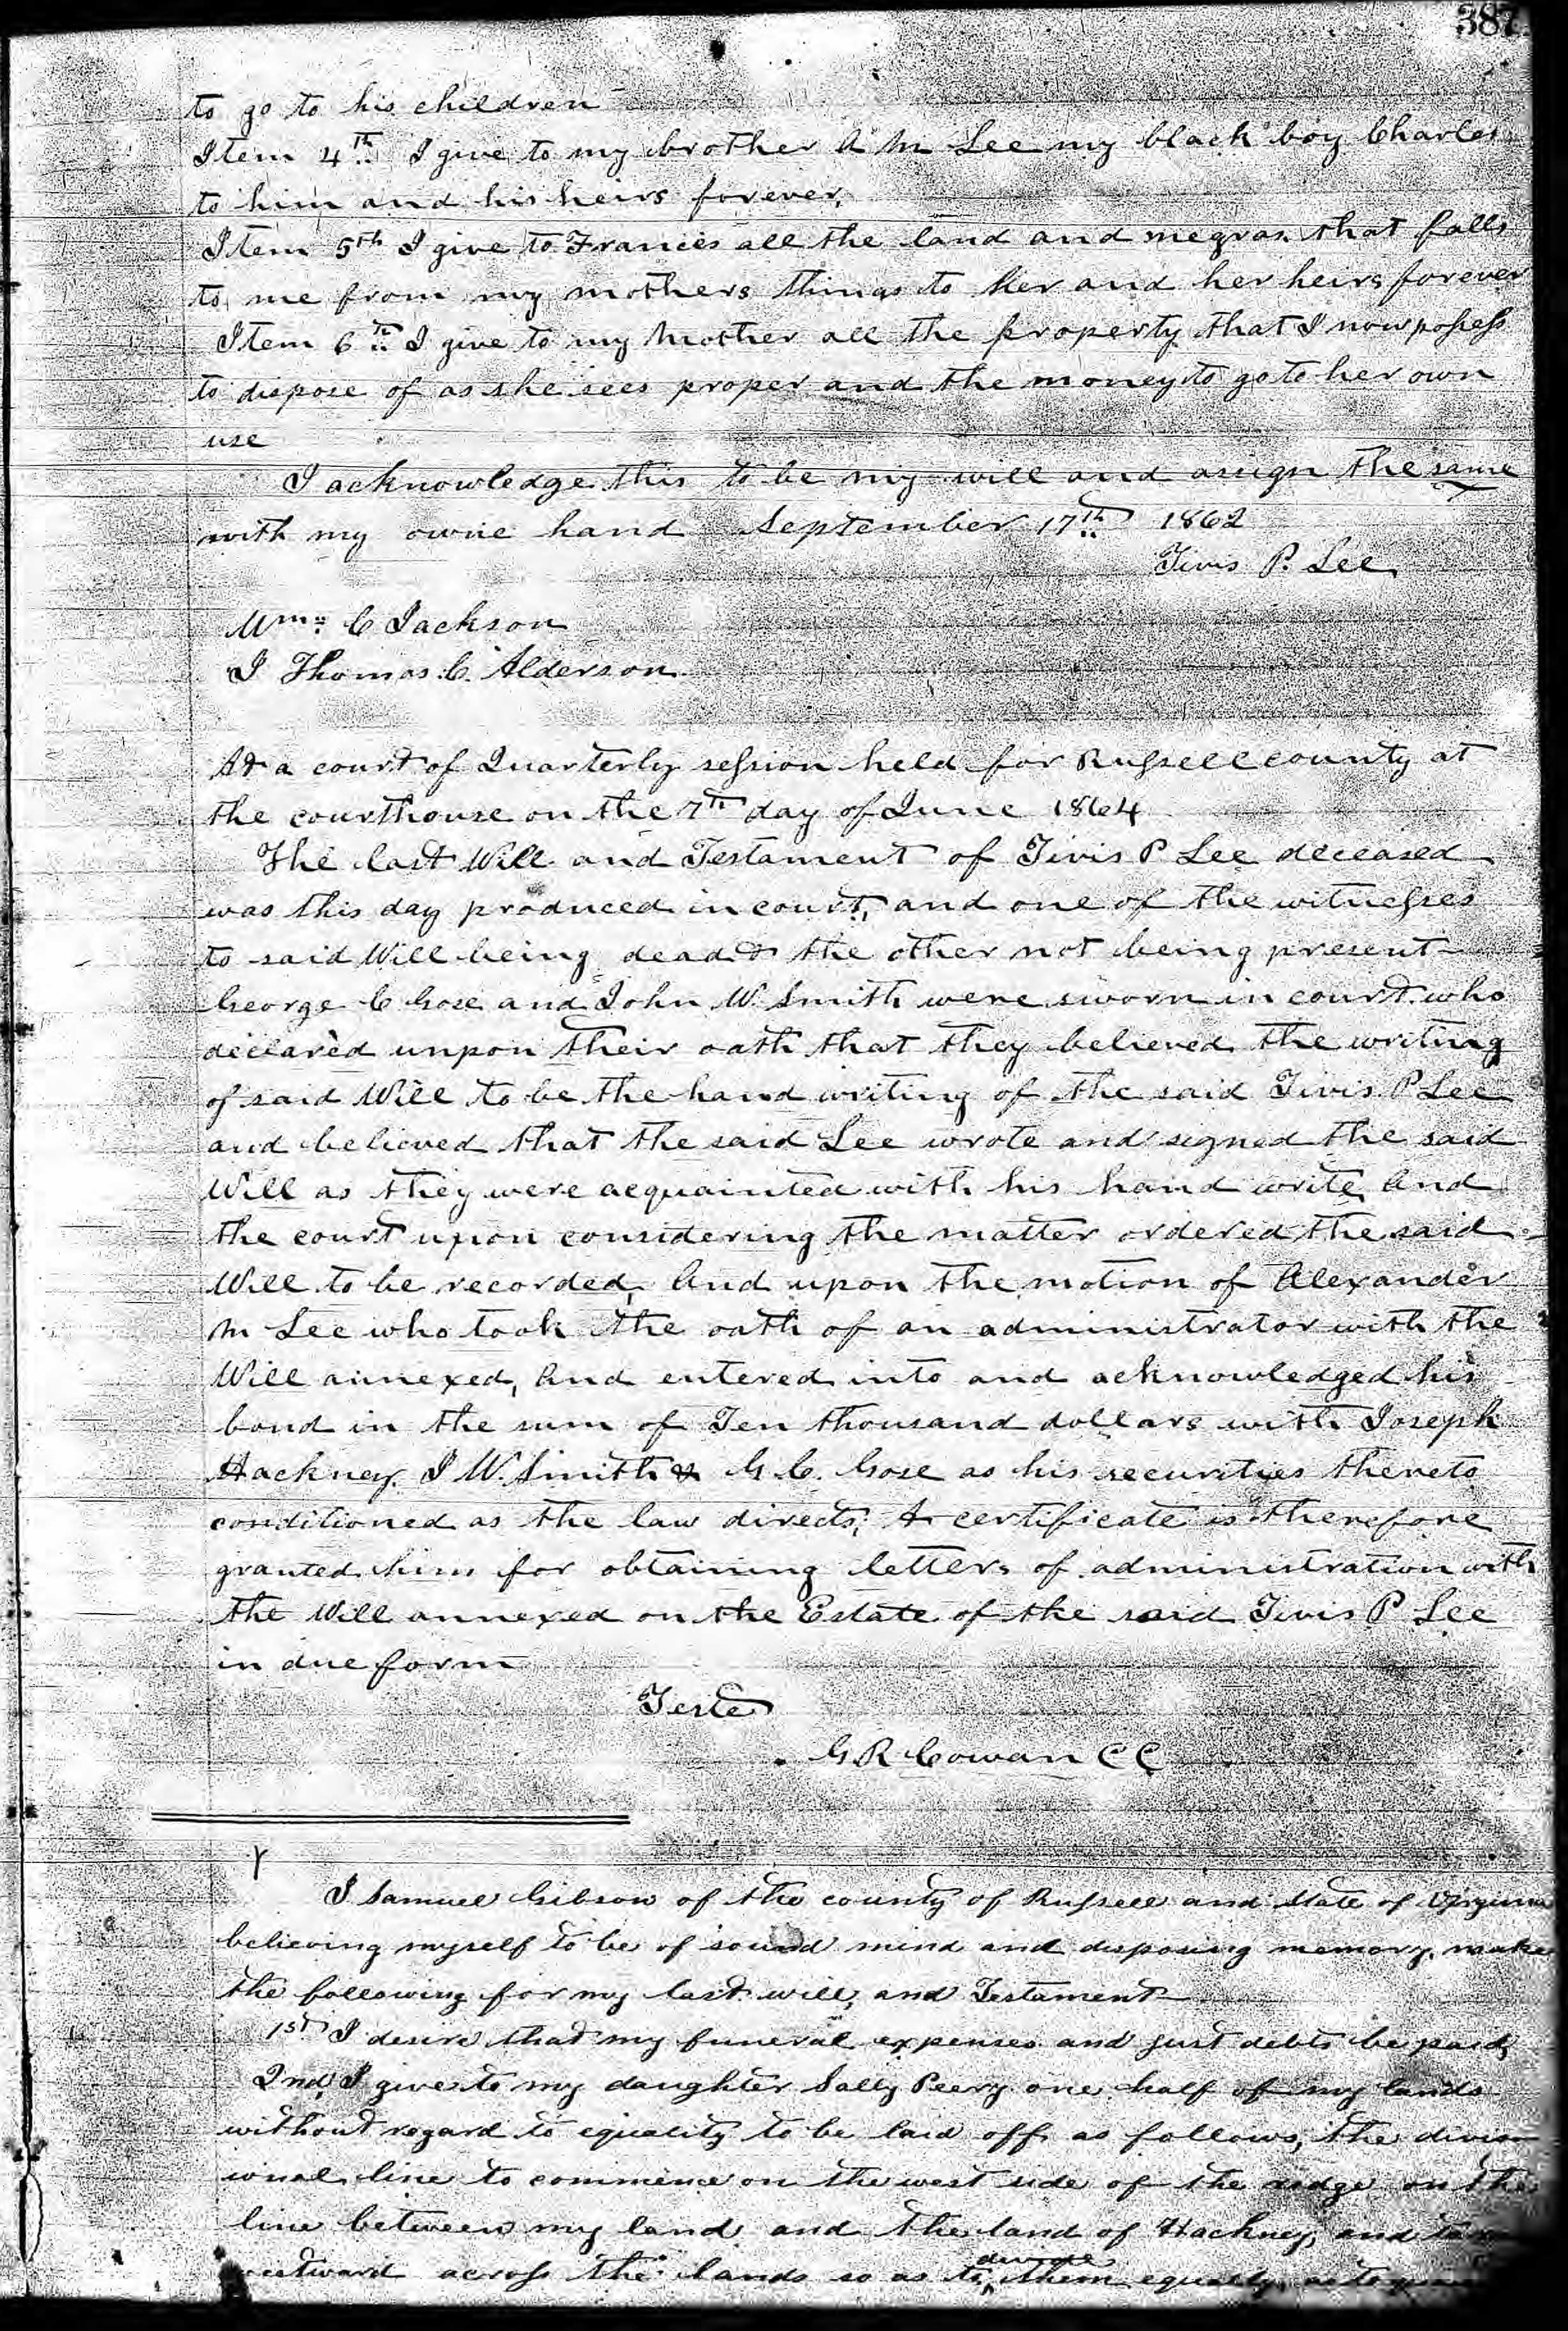 387
to go to his children
Item 4th I give to my brother A M Lee my black boy Charles
to him and his heirs forever.
Item 5th I give to Frances all the land and negros that falls
to me from my mothers things to her and her heirs forever
Item 6th I give to my Mother all the property that I now possess
to dispose of as she sees proper and the money to go to her own
use
I acknowledge this to be my will and assign the same
with my owne hand September 17th 1862
Tivis P. Lee
Wm. C Jackson
I Thomas C. Alderson
At a court of Quarterly session held for Russell county at
the courthouse on the 7th day of June 1864
The last Will and Testament of Tivis P Lee deceased
was this day produced in court, and one of the witnesses
to said Will being dead & the other not being present
George C Gose and John W. Smith were sworn in court who
declared unpon their oath that they believed the writing
of said Will to be the hand writing of the said Tivis P Lee
and believed that the said Lee wrote and signed the said
Will as they were acquainted with his hand write, And
the court upon considering the matter ordered the said
Will to be recorded, And upon the motion of Alexander
M Lee who took the oath of an administrator with the
Will annexed, And entered into and acknowledged his
bond in the sum of Ten thousand dollars with Joseph
Hackney. J W. Smith & G. C. Gose as his securities thereto
conditioned as the law directs; A certificate is therefore
granted him for obtaining letters of administration with
the Will annexed on the Estate of the said Tivis P Lee
in due form
Teste
G R Cowan C C
I Samuel Gibson of the county of Russell and State of Virginia
believing myself to be of sound mind and disposing memory, make
the following for my last will, and Testament
1st I desire that my funeral expenses and just debts be paid,
2nd, I give to my daughter Sally Peery one half of my lands
without regard to equality to be laid off as follows, the divis
ional line to commence on the west side of the ridge on the
line between my land and the land of Hackney, and
across the lands so as to divide them equally, as to